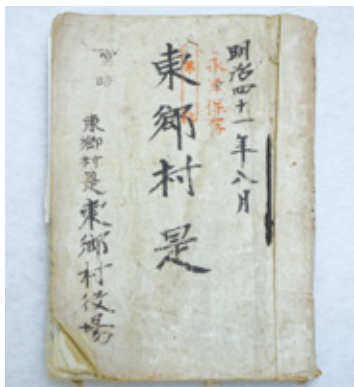 明治四十一年八月
永年保存
東郷村是
東郷村是
東郷村役場